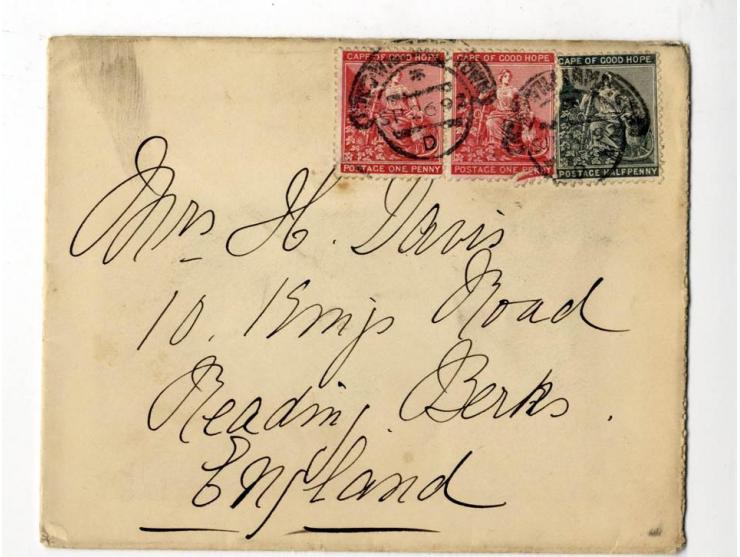 CAPE OF GOOD HOPE CAPE OF GOOD HOPE CAPE OF GOOD HOPE
POSTAGE ONE PENNY POSTAGE ONE PENNY POSTAGE HALFPENNY
Mrs H. Davis
10. Kings Road
Reading. Berks.
England